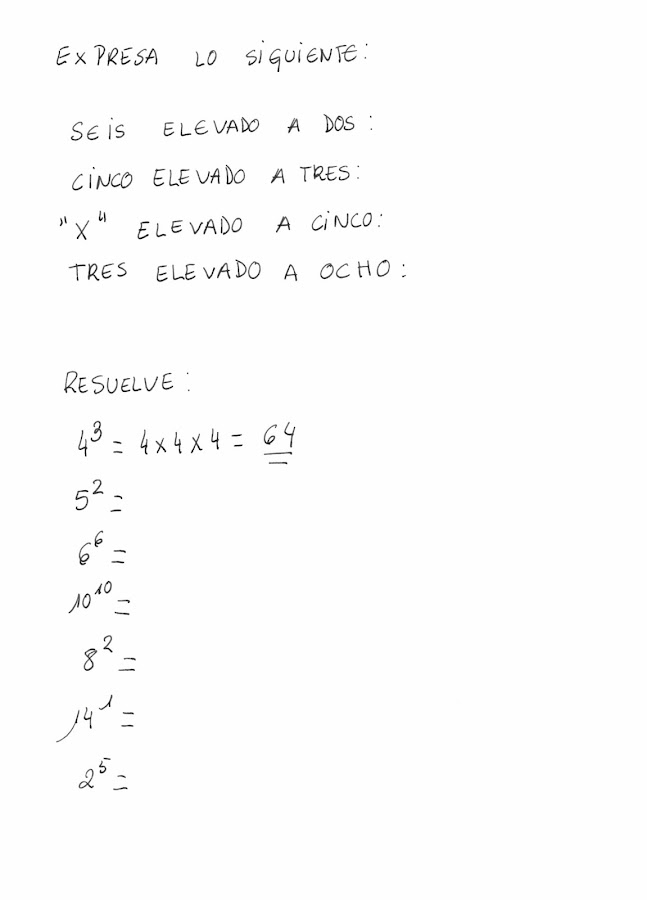 EXPRESA LO SIGUIENTE:
SEIS ELEVADO A DOS:
CINCO ELEVADO A TRES:
"X" ELEVADO A CINCO:
TRES ELEVADO A OCHO:
RESUELVE:
4³ = 4x4x4 = 64
5² =
6⁶ =
10¹⁰ =
8² =
14¹ =
2⁵ =